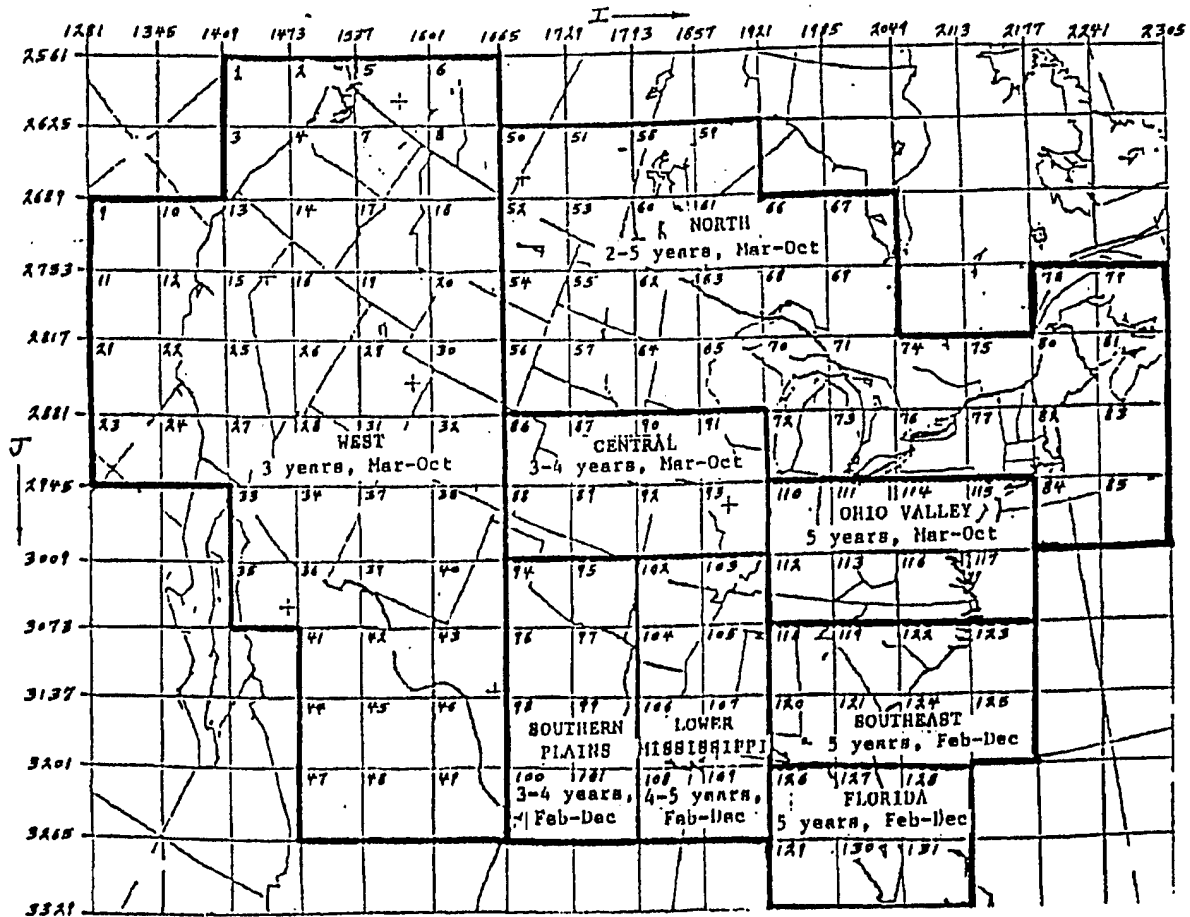 I
1281 1345 1409 1473 1537 1601 1665 1729 1793 1857 1921 1985 2049 2113 2177 2241 2305
2561
1 2 5 6
2625
3 4 7 8 50 51 58 59
2689
9 10 13 14 17 18 52 53 60 61 66 67
NORTH
2-5 years, Mar-Oct
2753
11 12 15 16 19 20 54 55 62 63 68 69 78 79
2817
21 22 25 26 29 30 56 57 64 65 70 71 74 75 80 81
2881
23 24 27 28 31 32 86 87 90 91 72 73 76 77 82 83
J
WEST
3 years, Mar-Oct
CENTRAL
3-4 years, Mar-Oct
2945
33 34 37 38 88 89 92 93 110 111 114 115 84 85
OHIO VALLEY
5 years, Mar-Oct
3009
35 36 39 40 94 95 102 103 112 113 116 117
3073
41 42 43 96 97 104 105 118 119 122 123
3137
44 45 46 98 99 106 107 120 121 124 125
SOUTHERN
PLAINS
LOWER
MISSISSIPPI
SOUTHEAST
5 years, Feb-Dec
3201
47 48 49 100 101 108 109 126 127 128
3-4 years,
Feb-Dec
4-5 years,
Feb-Dec
FLORIDA
5 years, Feb-Dec
3265
129 130 131
3329